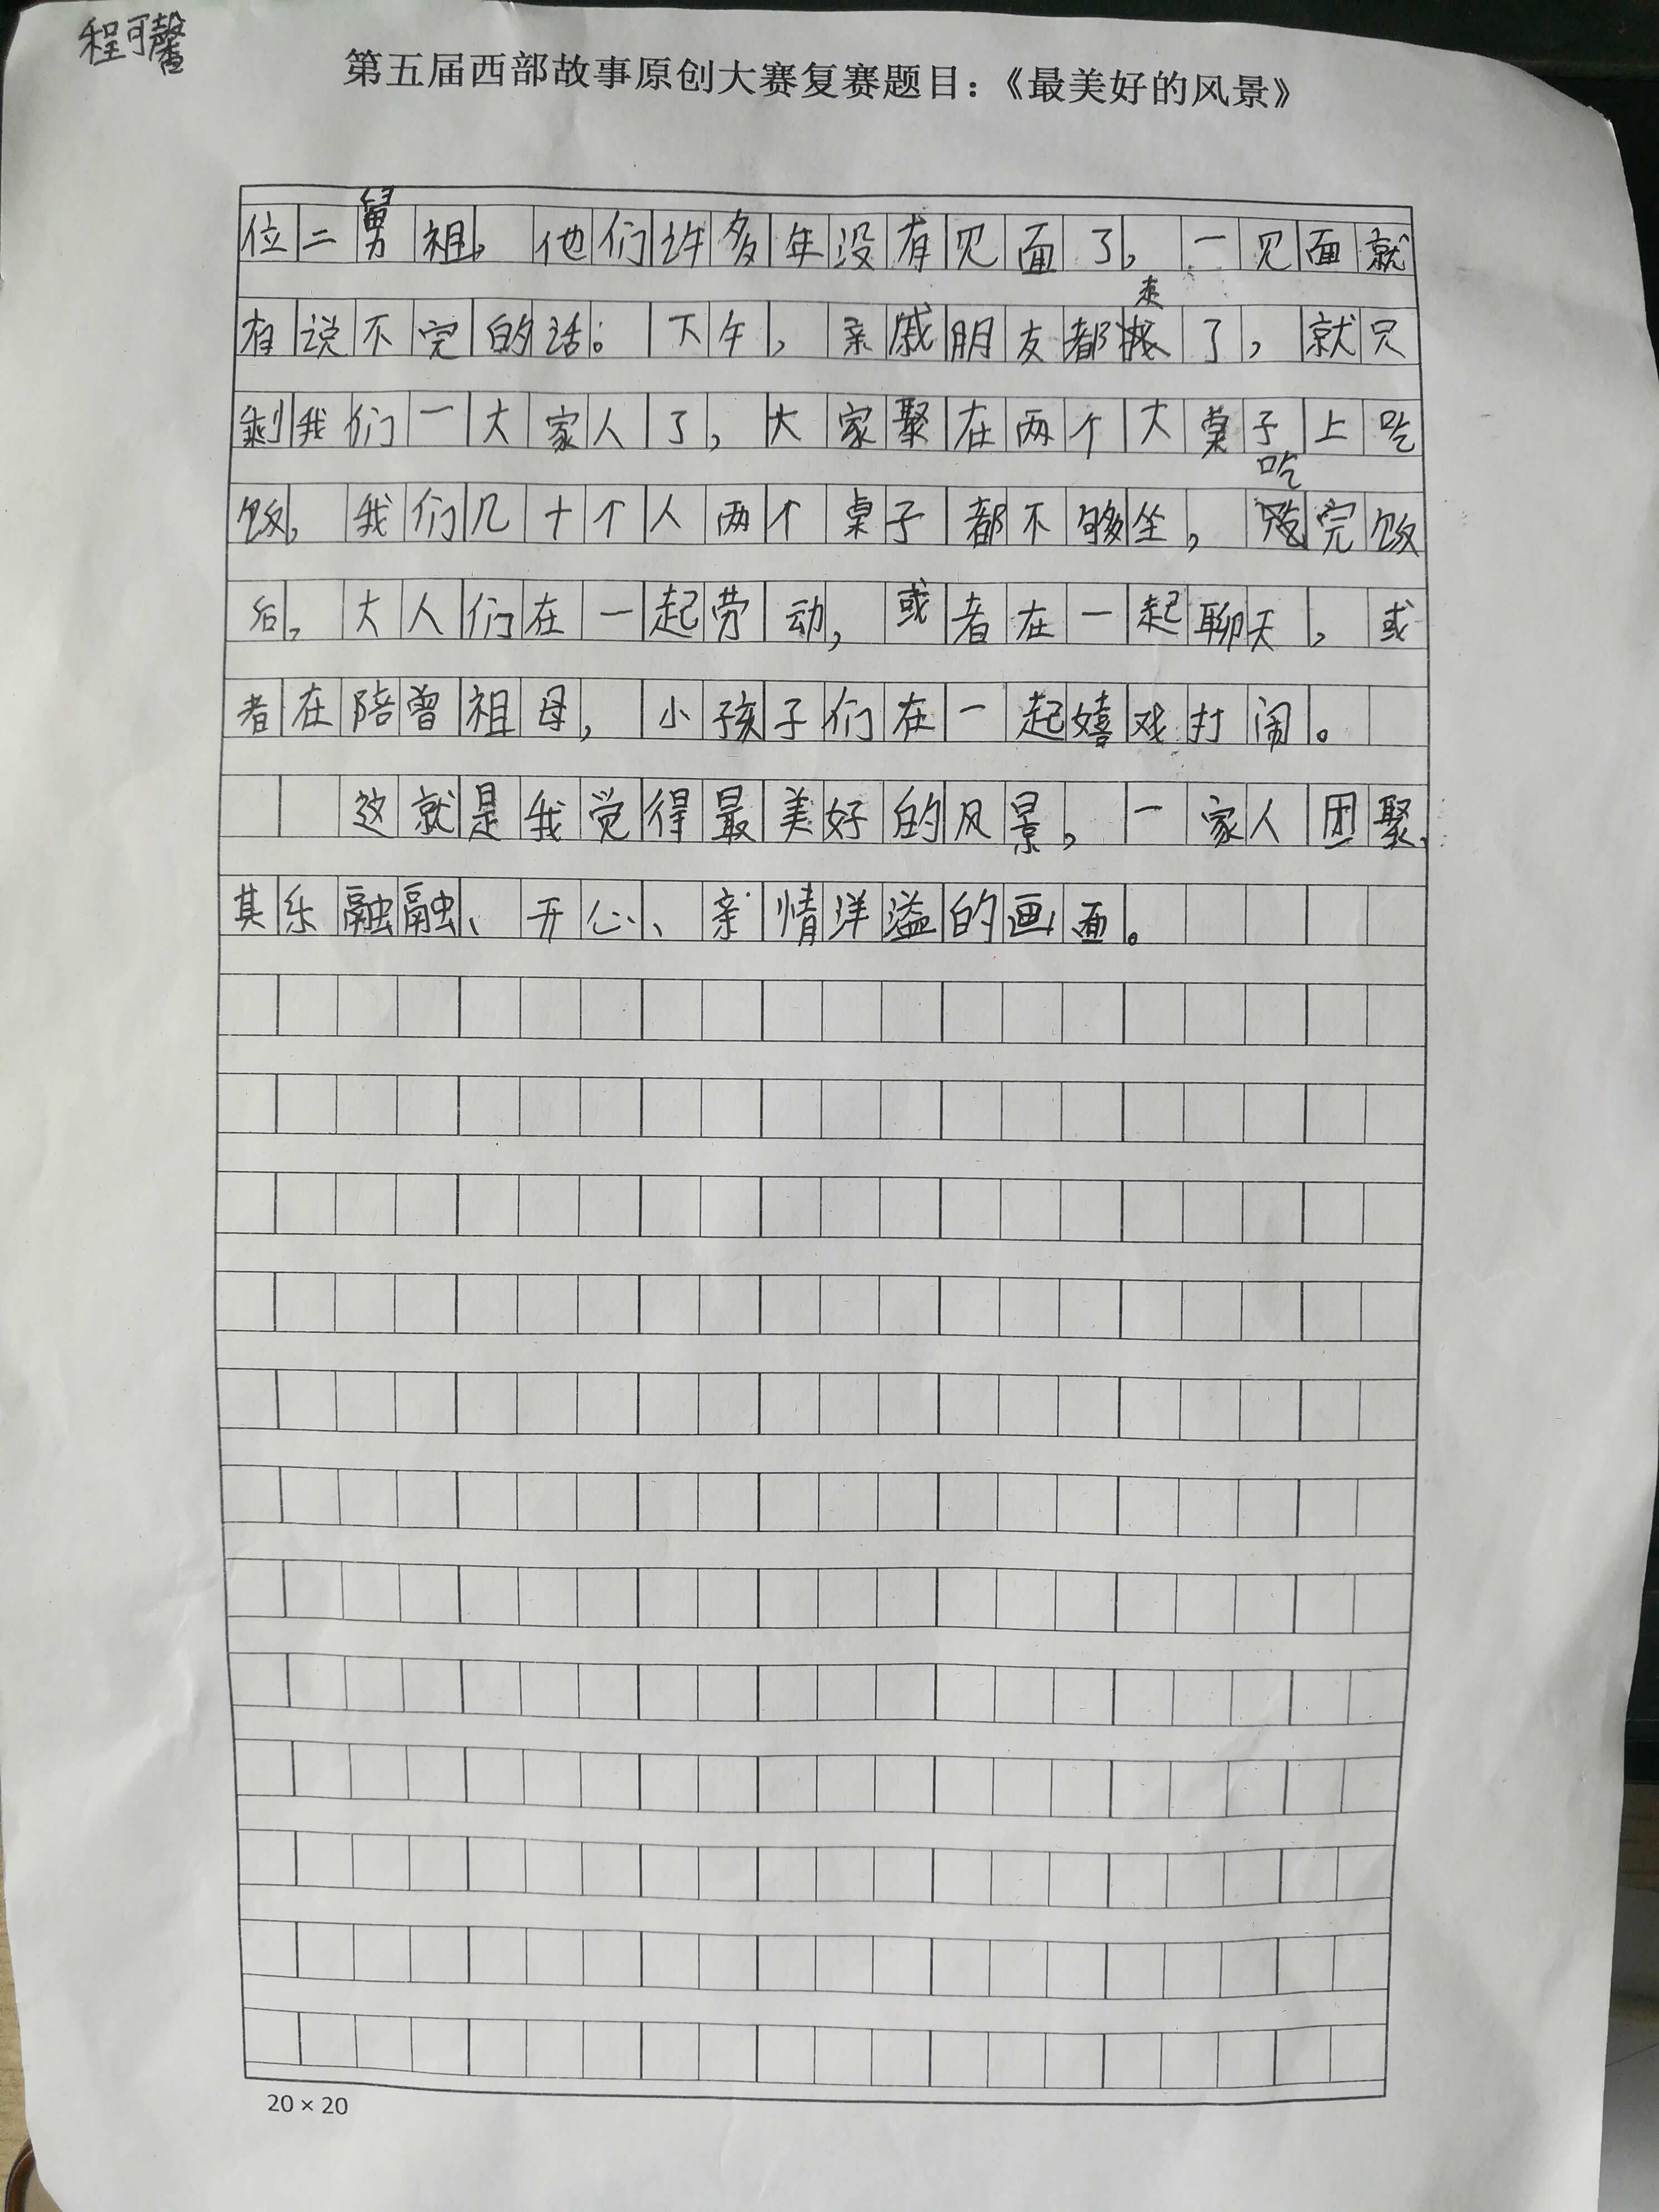 程可馨
第五届西部故事原创大赛复赛题目：《最美好的风景》
位二舅祖，他们许多年没有见面了，一见面就
有说不完的话。下午，亲戚朋友都来了，就只
剩我们一大家人了，大家聚在两个大桌子上吃
饭，我们几十个人两个桌子都不够坐，吃完饭
后，大人们在一起劳动，或者在一起聊天，或
者在陪曾祖母，小孩子们在一起嬉戏打闹。
这就是我觉得最美好的风景，一家人团聚、
其乐融融、开心、亲情洋溢的画面。
20×20